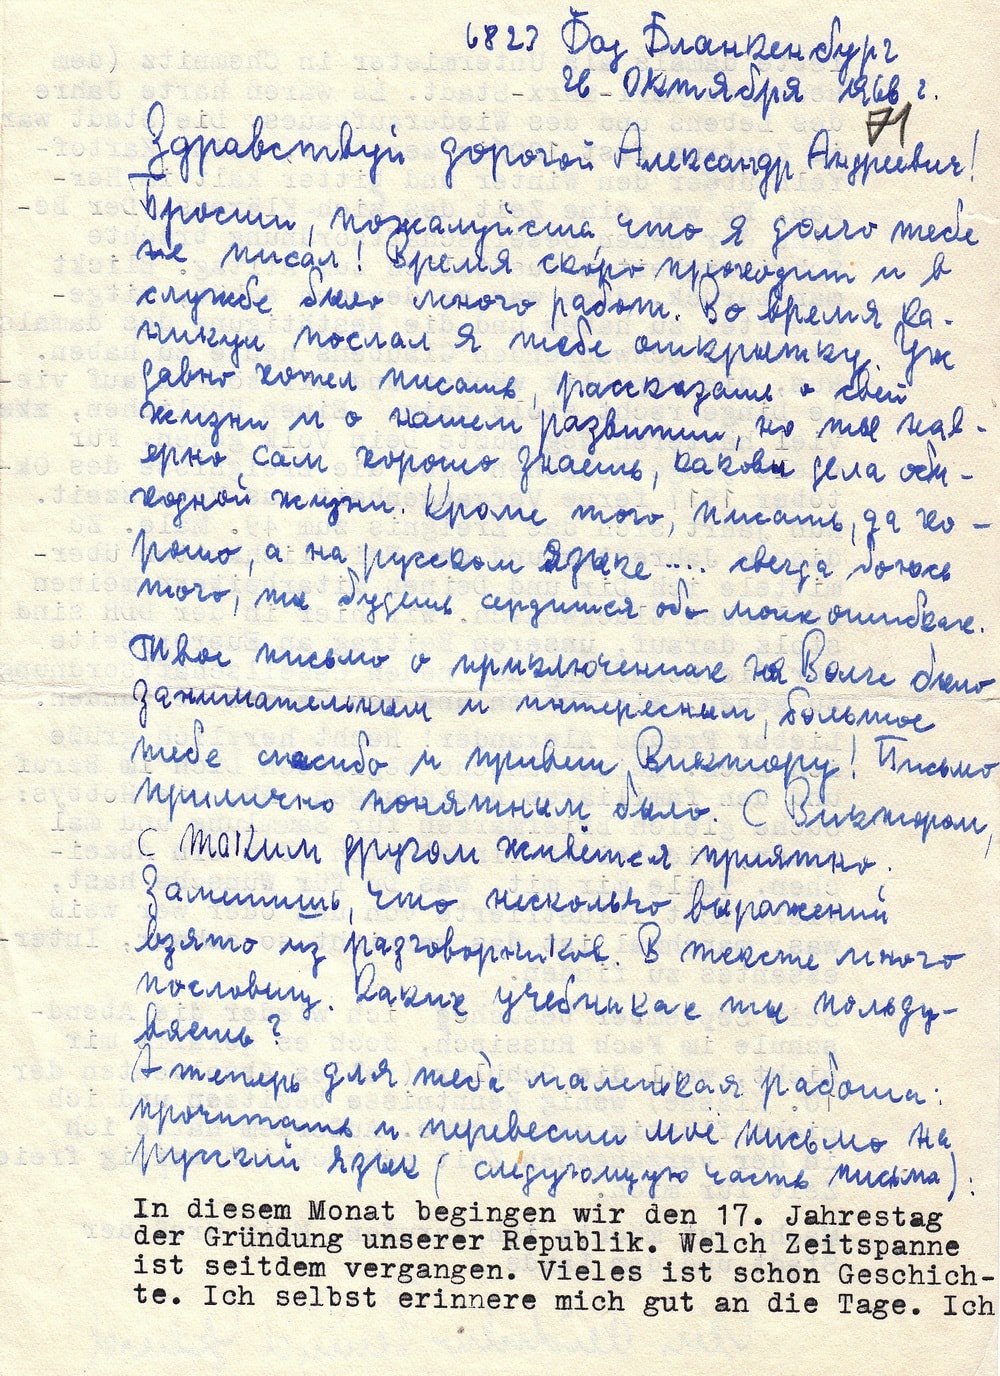 6823 Бад Бланкенбург
26 Октября 1966 г.
71
Здравствуй дорогой Александр Андреевич!
Простии, пожалуйста, что я долго тебе
не писал! Время скоро проходит и в
службе было много работ. Во время ка-
никул послал я тебе открытку. Уж
давно хотел писать, рассказать о своей
жизни и о нашем развитии, но ты нав-
ерно сам хорошо знаешь, каковы дела обы-
ходной жизни. Кроме того, писать, да хо-
рошо, а на русском языке .... всегда боюсь
того, ты будешь сердится обо моих ошибках.
Твоё письмо о приключениях на Волге было
занимательным и интересным, большое
тебе спасибо и привет Виктору! Письмо
прилично понятным было. С Виктором,
с таким другом живётся приятно.
Заметишь, что несколько выражений
взято из разговорников. В тексте много
пословиц. Каких учебниках ты пользу-
ваешь?
А теперь для тебе маленькая работа:
прочитать и перевести моё письмо на
русский язык (следующую часть письма):
In diesem Monat begingen wir den 17. Jahrestag
der Gründung unserer Republik. Welch Zeitspanne
ist seitdem vergangen. Vieles ist schon Geschich-
te. Ich selbst erinnere mich gut an die Tage. Ich